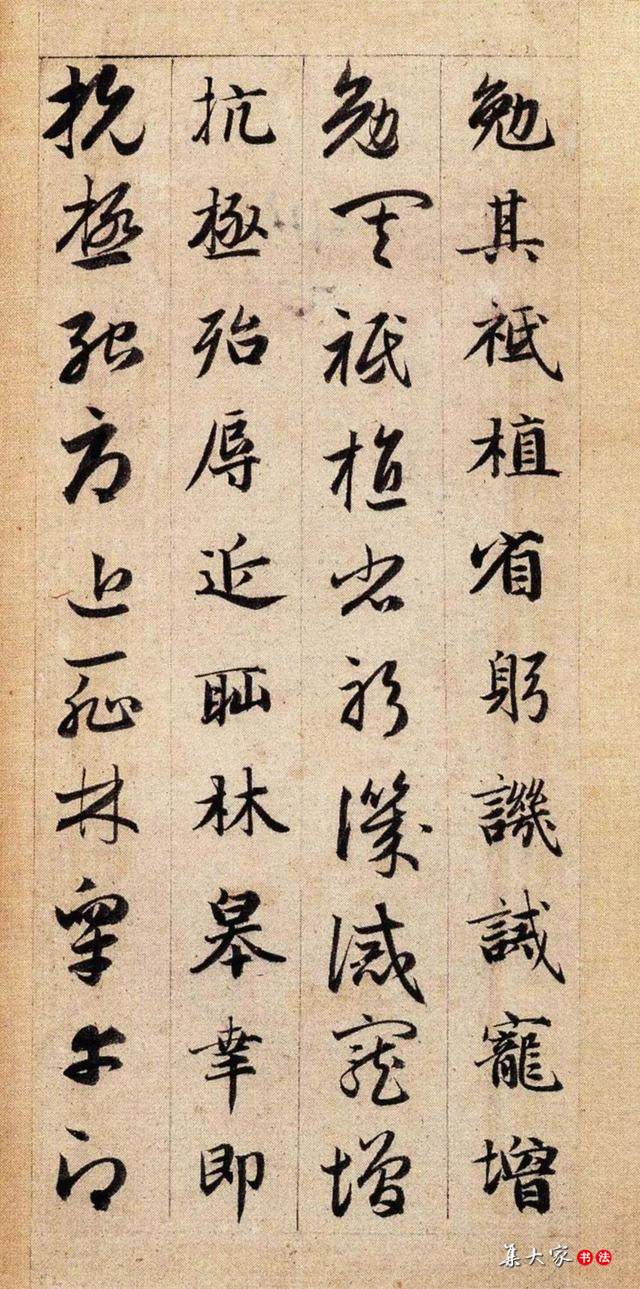 勉其祗植省躬譏誡寵增
勉其祗植省躬譏誡寵增
抗極殆辱近恥林皋幸即
抗極殆辱近恥林皋幸即
集大家书法